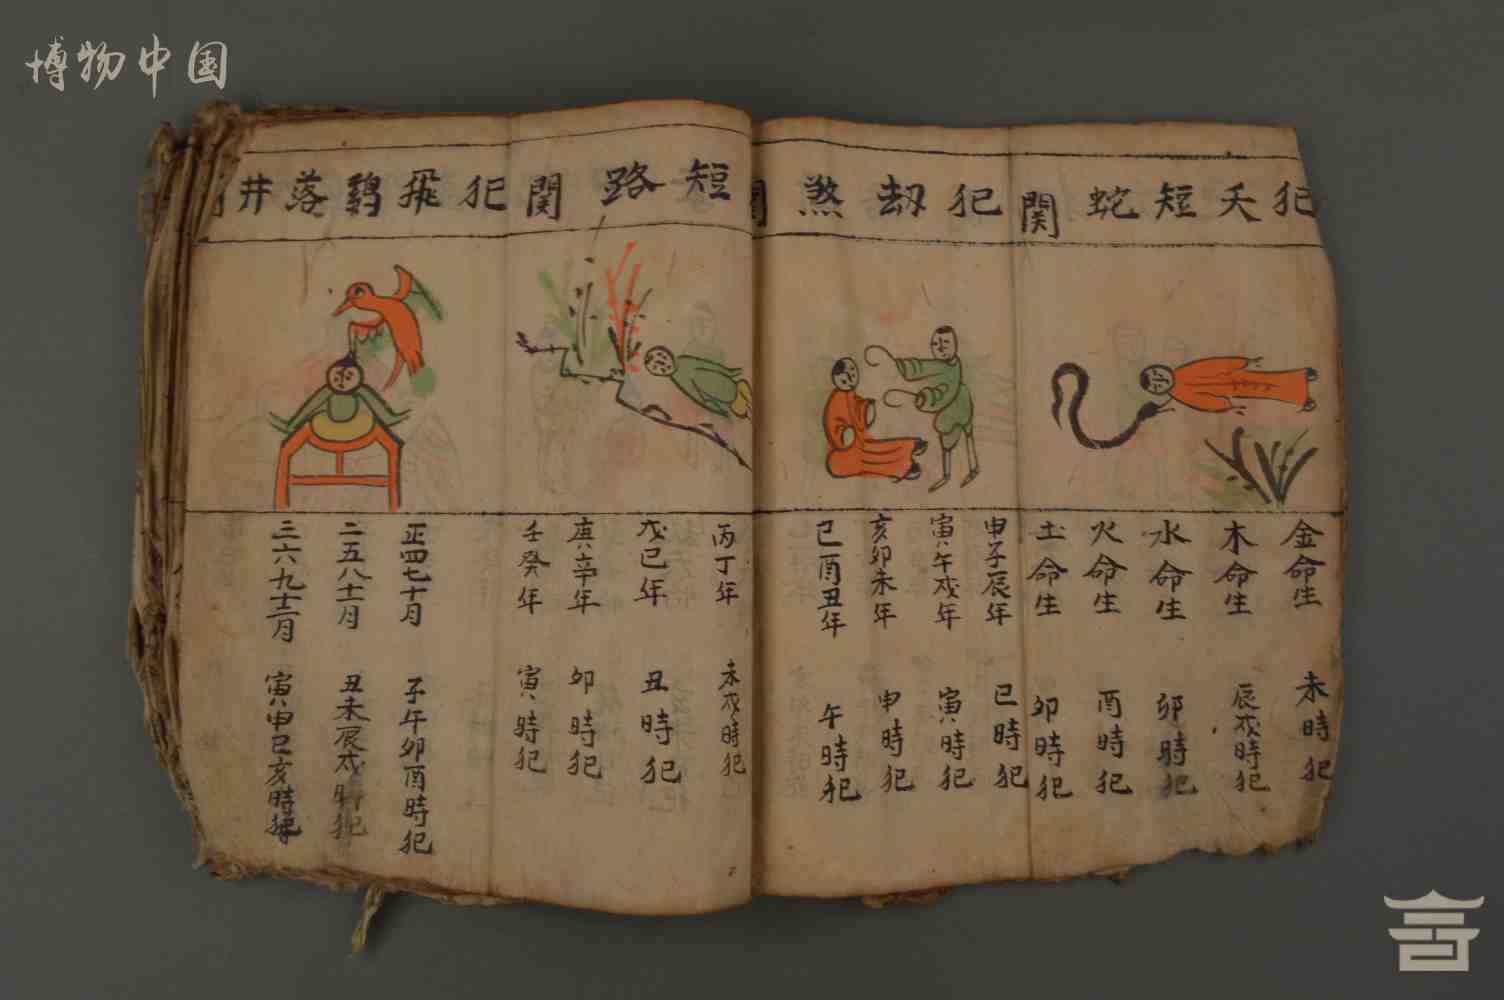 博物中国
犯夭短蛇関
金命生 未時犯
木命生 辰戍時犯
水命生 卯時犯
火命生 酉時犯
土命生 卯時犯
犯刼煞関
申子辰年 巳時犯
寅午戍年 寅時犯
亥卯未年 申時犯
巳酉丑年 午時犯
短路関
丙丁年 未戍時犯
戊己年 丑時犯
庚辛年 卯時犯
壬癸年 寅時犯
犯飛鷄落井
正四七十月 子午卯酉時犯
二五八十一月 丑未辰戍時犯
三六九十二月 寅申巳亥時犯